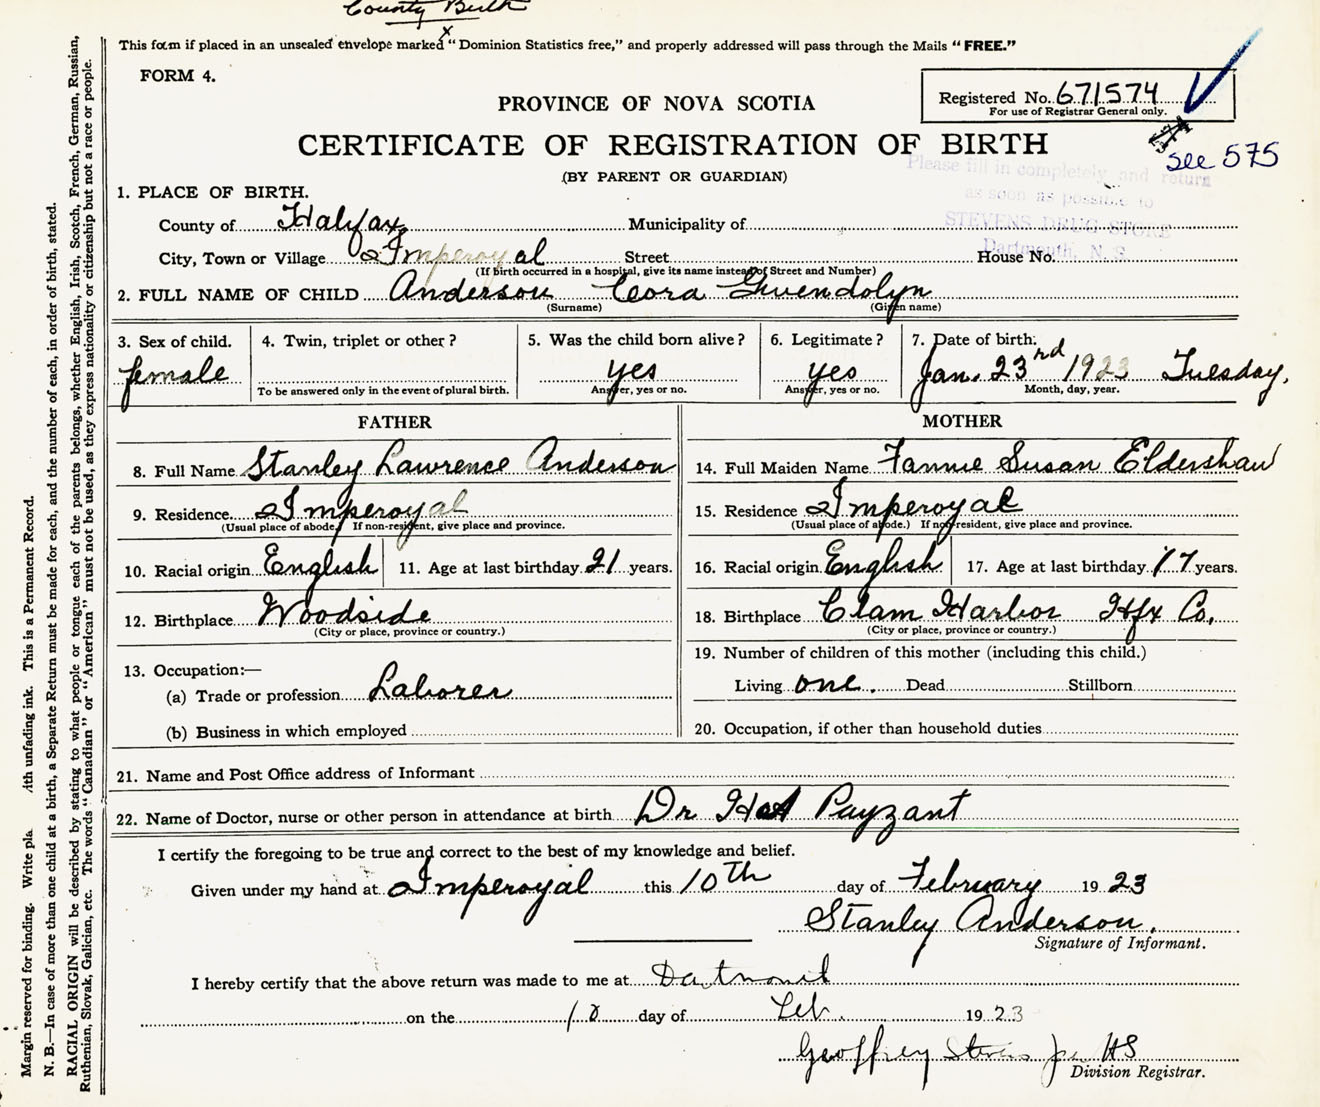 County Birth
x
This form if placed in an unsealed envelope marked "Dominion Statistics free," and properly addressed will pass through the Mails "FREE."
FORM 4.
Registered No. 671574
For use of Registrar General only.
PROVINCE OF NOVA SCOTIA
CERTIFICATE OF REGISTRATION OF BIRTH
see 575
(BY PARENT OR GUARDIAN)
Please fill in completely and return
as soon as possible to
STEVENS DRUG STORE
Dartmouth, N. S.
1. PLACE OF BIRTH.
County of Halifax Municipality of
City, Town or Village Imperoyal Street House No.
(If birth occurred in a hospital, give its name instead of Street and Number)
2. FULL NAME OF CHILD Anderson Cora Gwendolyn
(Surname) (Given name)
3. Sex of child. 4. Twin, triplet or other? 5. Was the child born alive? 6. Legitimate? 7. Date of birth:
female yes yes Jan. 23rd 1923 Tuesday,
To be answered only in the event of plural birth. Answer, yes or no. Answer, yes or no. Month, day, year.
FATHER MOTHER
8. Full Name Stanley Lawrence Anderson 14. Full Maiden Name Fannie Susan Eldershaw
9. Residence Imperoyal 15. Residence Imperoyal
(Usual place of abode.) If non-resident, give place and province. (Usual place of abode.) If non-resident, give place and province.
10. Racial origin English 11. Age at last birthday 21 years. 16. Racial origin English 17. Age at last birthday 17 years.
12. Birthplace Woodside 18. Birthplace Clam Harbor Hfx Co.
(City or place, province or country.) (City or place, province or country.)
13. Occupation:— 19. Number of children of this mother (including this child.)
(a) Trade or profession Laborer Living one. Dead Stillborn
(b) Business in which employed 20. Occupation, if other than household duties
21. Name and Post Office address of Informant
22. Name of Doctor, nurse or other person in attendance at birth Dr Payzant
I certify the foregoing to be true and correct to the best of my knowledge and belief.
Given under my hand at Imperoyal this 10th day of February 1923
Stanley Anderson.
Signature of Informant.
I hereby certify that the above return was made to me at Dartmouth
on the 10 day of Feb. 1923
Geoffrey Stevens
Division Registrar.
Margin reserved for binding. Write pla ith unfading ink. This is a Permanent Record.
N. B.—In case of more than one child at a birth, a Separate Return must be made for each, and the number of each, in order of birth, stated.
RACIAL ORIGIN will be described by stating to what people or tongue each of the parents belongs, whether English, Irish, Scotch, French, German, Russian,
Ruthenian, Slovak, Galician, etc. The words "Canadian" or "American" must not be used, as they express nationality or citizenship but not a race or people.